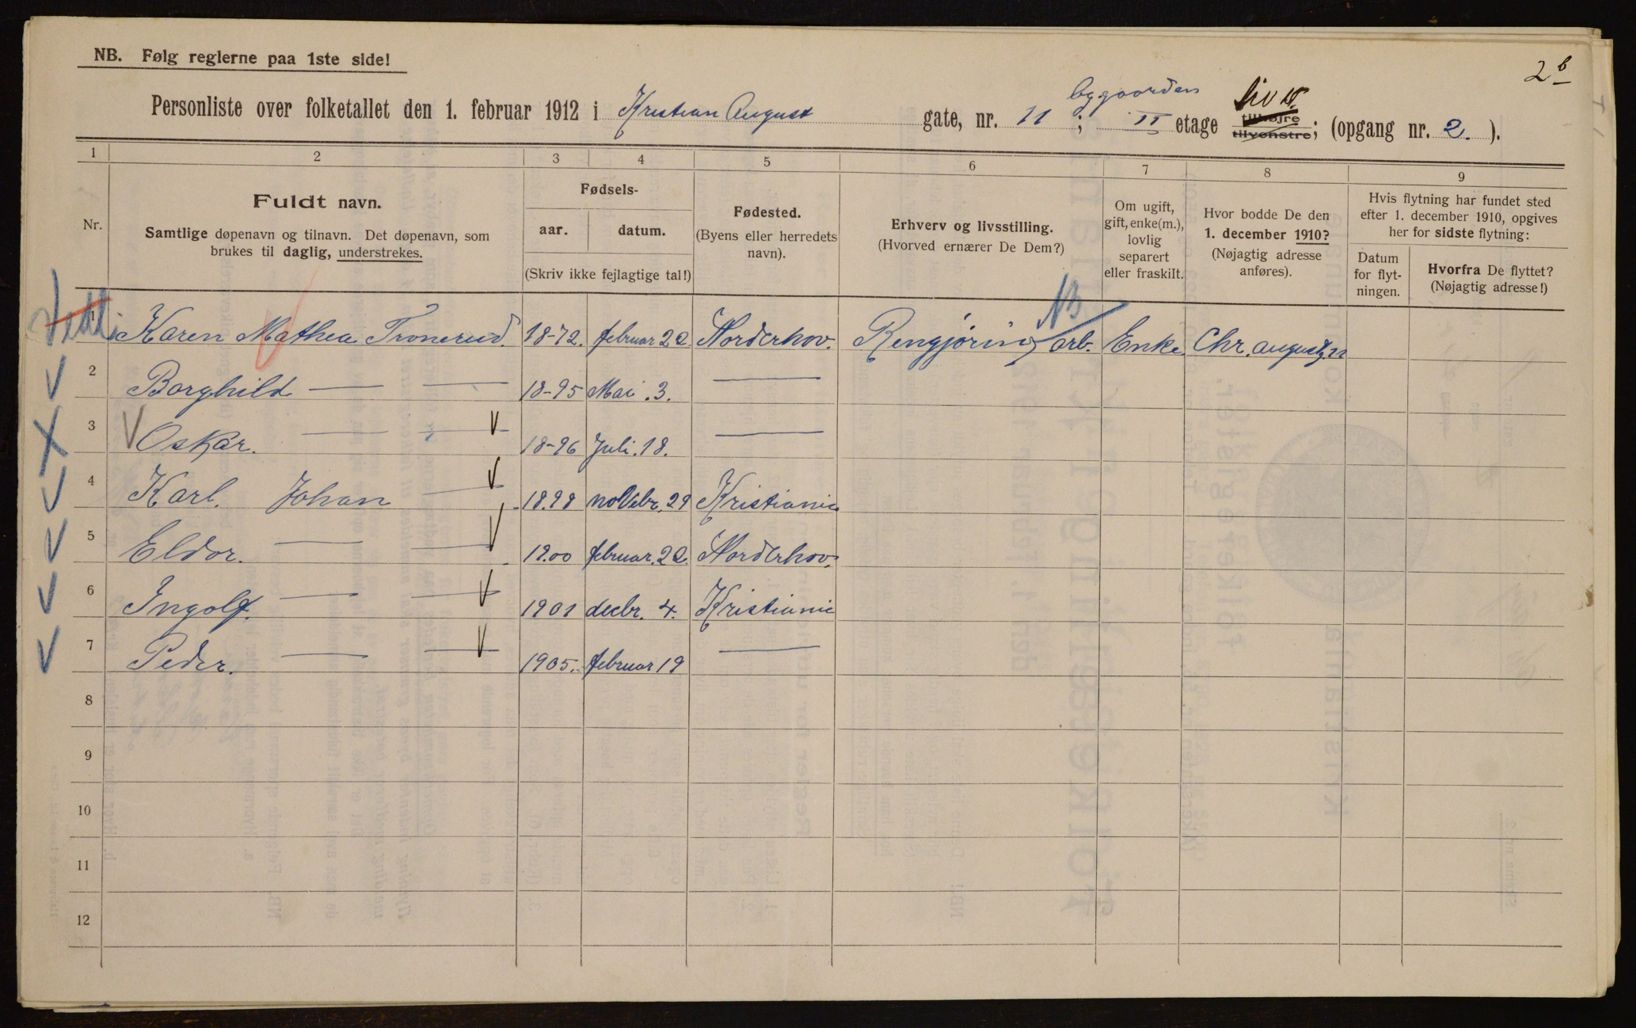 NB. Følg reglerne paa 1ste side!
2 b
Personliste over folketallet den 1. februar 1912 i Kristian August gate, nr. 11 bygaarden ; II etage tilhøjre tilvenstre; (opgang nr. 2. ).
1 2 3 4 5 6 7 8 9
Nr.
Fuldt navn.
Samtlige døpenavn og tilnavn. Det døpenavn, som
brukes til daglig, understrekes.
Fødsels-
aar. datum.
(Skriv ikke feilagtige tal!)
Fødested.
(Byens eller herredets
navn).
Erhverv og livsstilling.
(Hvorved ernærer De Dem?)
Om ugift,
gift, enke(m.),
lovlig
separert
eller fraskilt.
Hvor bodde De den
1. december 1910?
(Nøjagtig adresse
anføres).
Hvis flytning har fundet sted
efter 1. december 1910, opgives
her for sidste flytning:
Datum
for flyt-
ningen.
Hvorfra De flyttet?
(Nøjagtig adresse!)
NB
1 Karen Mathea Tronerud. 1872. februar 22 Norderhov. Rengjøring arb. Enke Chr. augustg 11
2 Borghild — — 18-95 Mai. 3. —
3 Oskar. — — 18-96 Juli. 18. —
4 Karl. Johan — 1898 novebr. 29 Kristiania
5 Eldor. — — 1900 februar. 22. Norderhov.
6 Ingolf. — — 1901 decbr. 4. Kristiania
7 Peder. — — 1905. februar 19 —
8
9
10
11
12